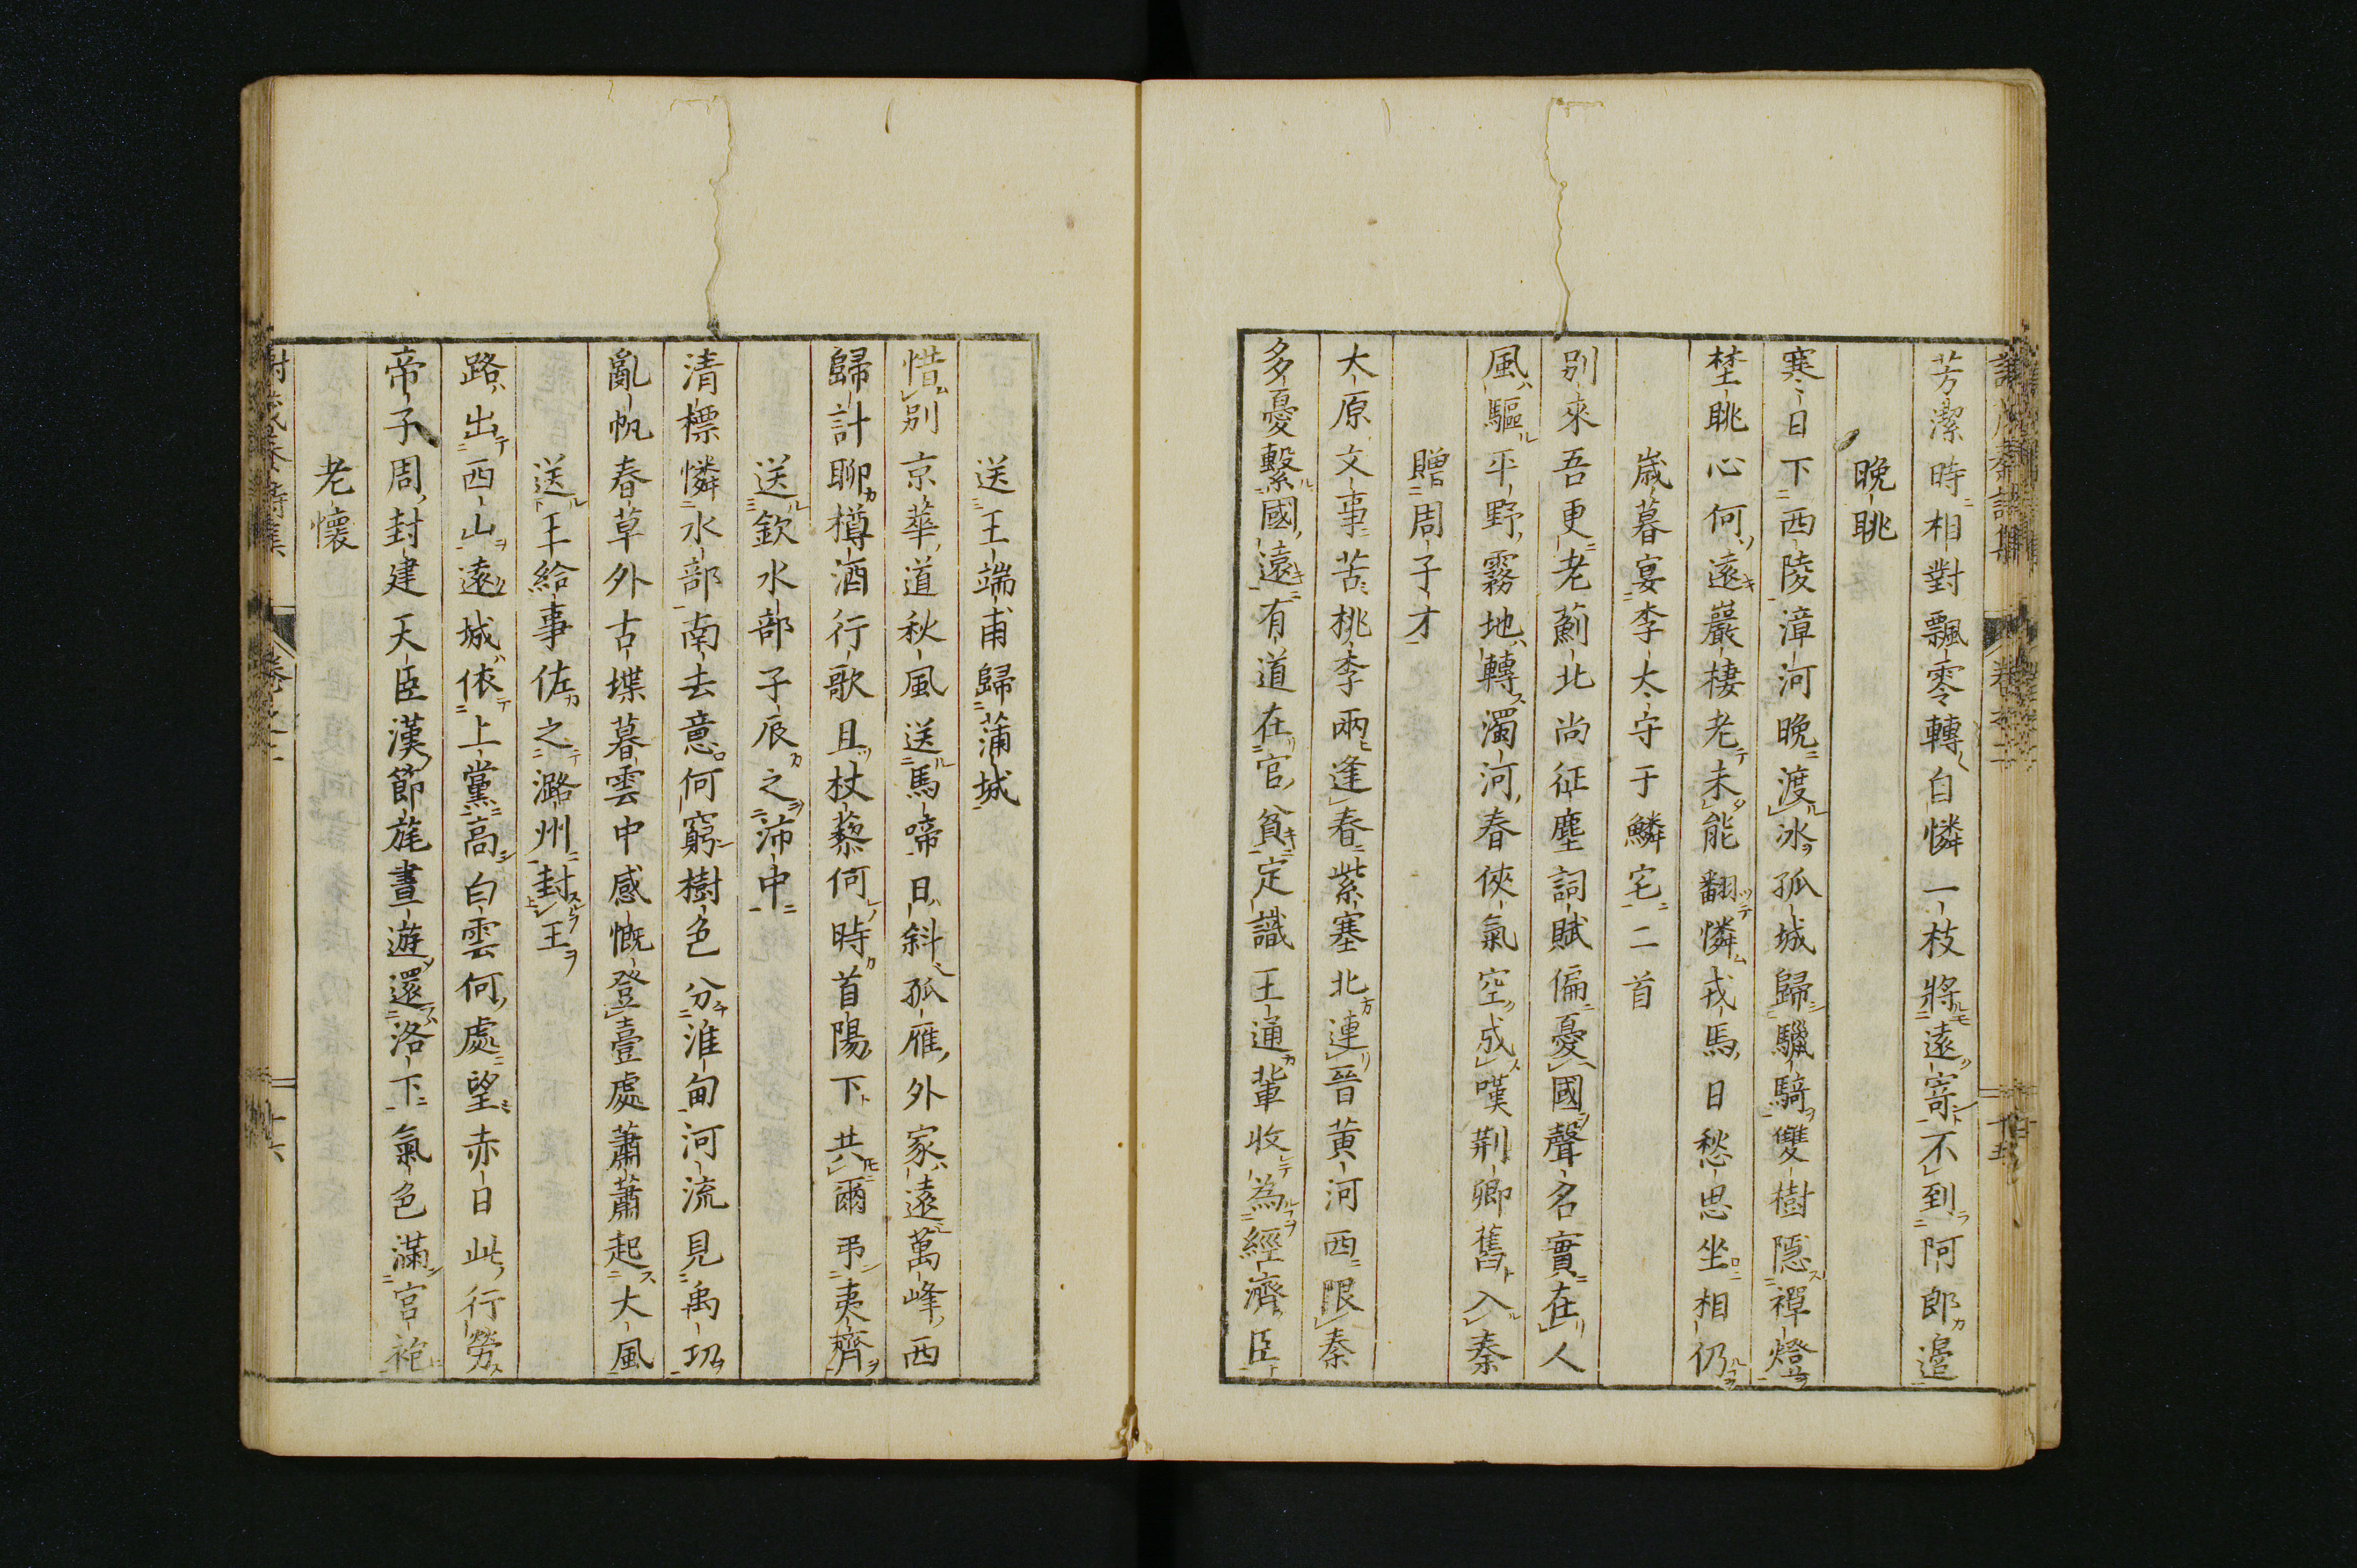 芳潔時相對飄零轉自憐一枝將遠寄不到阿郎邊
晩眺
寒日下西陵漳河晚渡冰孤城歸驪騎雙樹隱禪燈
埜眺心何遠巖棲老未能翻憐戎馬日愁思坐相仍
歲暮宴李太守于鱗宅二首
別來吾更老薊北尚征塵詞賦偏憂國聲名實在人
風驅平野霧地轉濁河春俠氣空成嘆荆卿舊入秦
贈周子才
大原文事苦桃李兩逢春紫塞北連晉黄河西限秦
多憂繫國遠有道在官貧定識王通輩收為經濟臣
送王端甫歸蒲城
惜別京華道秋風送馬啼日斜孤雁外家遠萬峰西
歸計聊樽酒行歌且杖藜何時首陽下共爾弔夷齊
送欽水部子辰之沛中
清標憐水部南去意何窮樹色分淮甸河流見禹功
亂帆春草外古堞暮雲中感慨登臺處蕭蕭起大風
送王給事佐之潞州封王
路出西山遠城依上黨高白雲何處望赤日此行勞
帝子周封建天臣漢節旄晝遊還洛下氣色滿宮袍
老懷